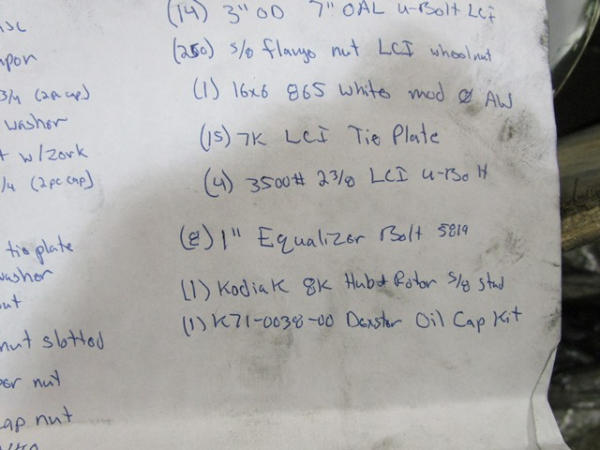 (14) 3" OD 7" OAL U-Bolt LCI
(250) 5/8 flange nut LCI wheelnut
(1) 16x6 865 white mod Ø AW
(15) 7K LCI Tie Plate
(4) 3500# 2 3/8 LCI U-Bolt
(8) 1" Equalizer Bolt 5819
(1) Kodiak 8K Hub & Rotor 5/8 stud
(1) K71-0038-00 Dexster Oil Cap Kit
3/4 (2pc cap)
washer
w/zork
1/4 (2pc cap)
tie plate
washer
nut slotted
nut
cap nut